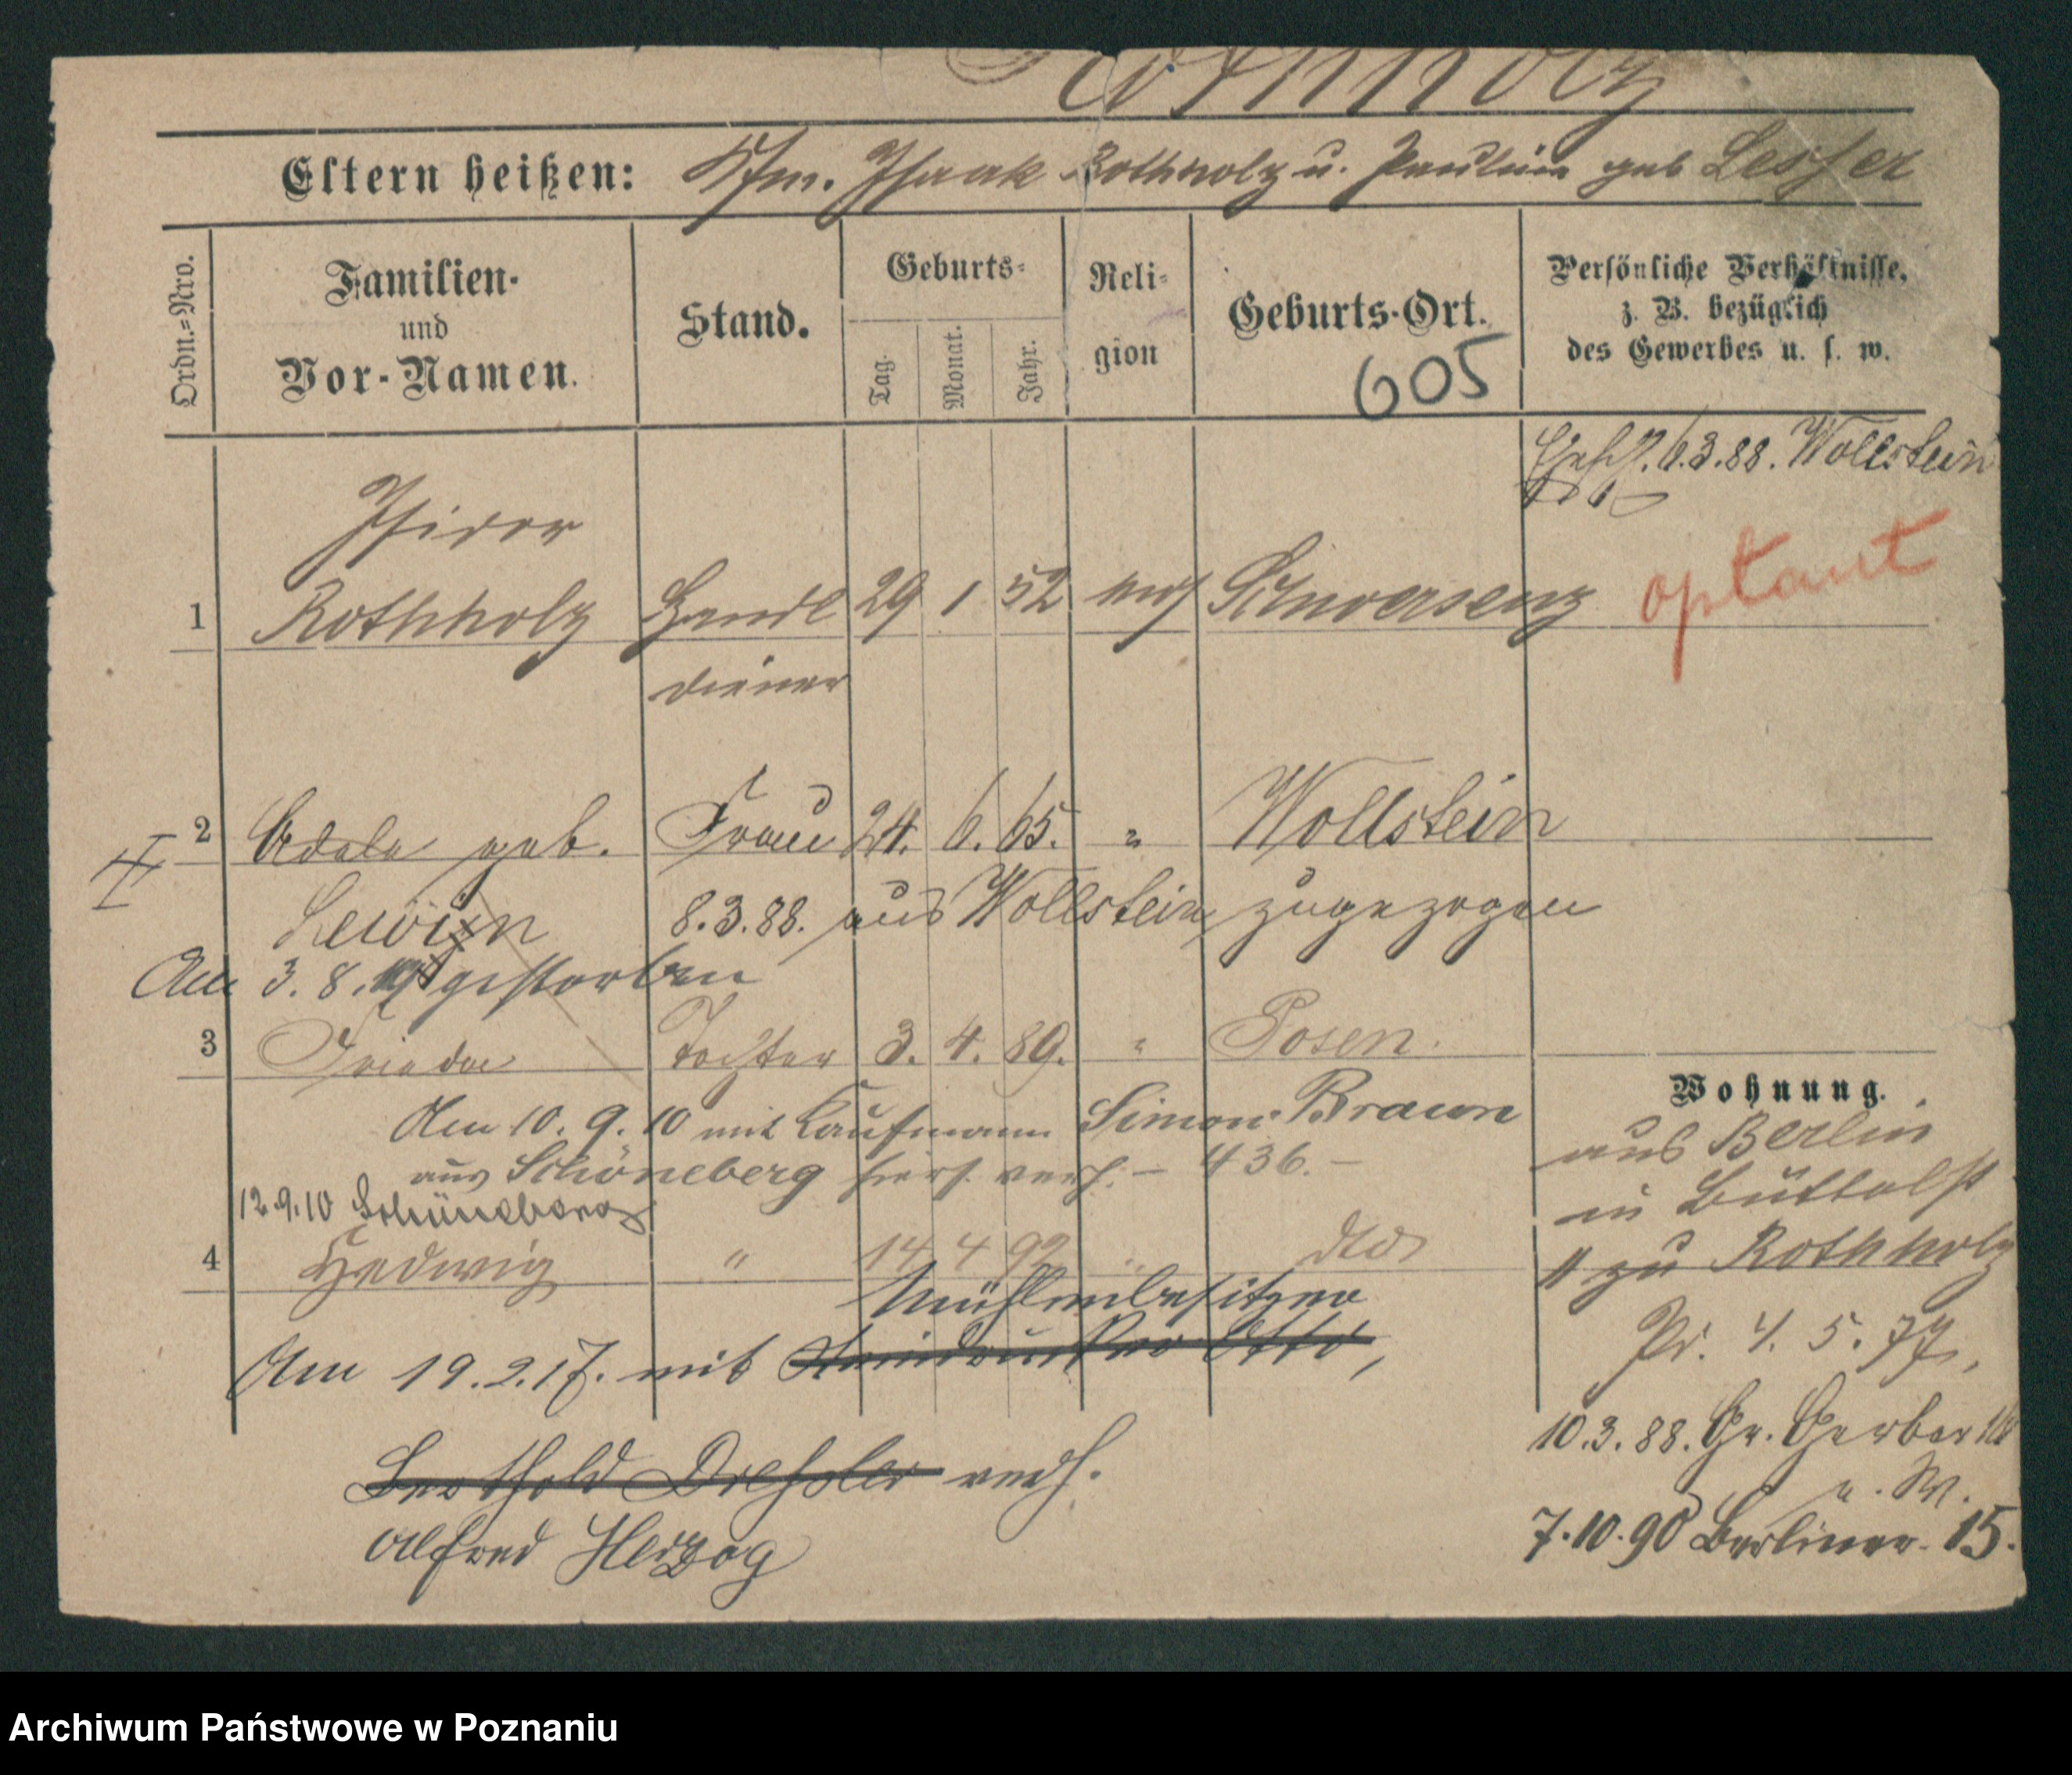 Rothholz
Eltern heißen: Kfm. Isaak Rothholz u. Pauline geb Lesser
Ordn.=Nro.
Familien-
und
Vor-Namen.
Stand.
Geburts-
Tag.
Monat.
Jahr.
Reli-
gion
Geburts-Ort.
605
Persönliche Verhältnisse,
z. B. bezüglich
des Gewerbes u. s. w.
6.3.88. Wollstein
Isidor
1 Rothholz Handl 29 1 52 mos Schwersenz optant
diener
2 Adele geb. Frau 24. 6. 65. " Wollstein
Lewin 8.3.88. aus Wollstein zugezogen
Am 3. 8. gestorben
3 Frieda Tochter 3. 4. 89. " Posen.
Am 10. 9. 10 mit Kaufmann Simon Braun
aus Schöneberg hiers. verh. – 436. –
12.9.10 Schöneberg
4 Hedwig " 14 4 92 " do
Mühlenbesitzer
Am 19. 2. 17. mit Otto,
Berthold verh.
Alfred Herzog
Wohnung.
aus Berlin
in Büttelst
zu Rothholz
Pr. 4. 5. 77,
10.3.88. Gr. Gerber
u. W.
7.10.90 Berliner. 15.
Archiwum Państwowe w Poznaniu